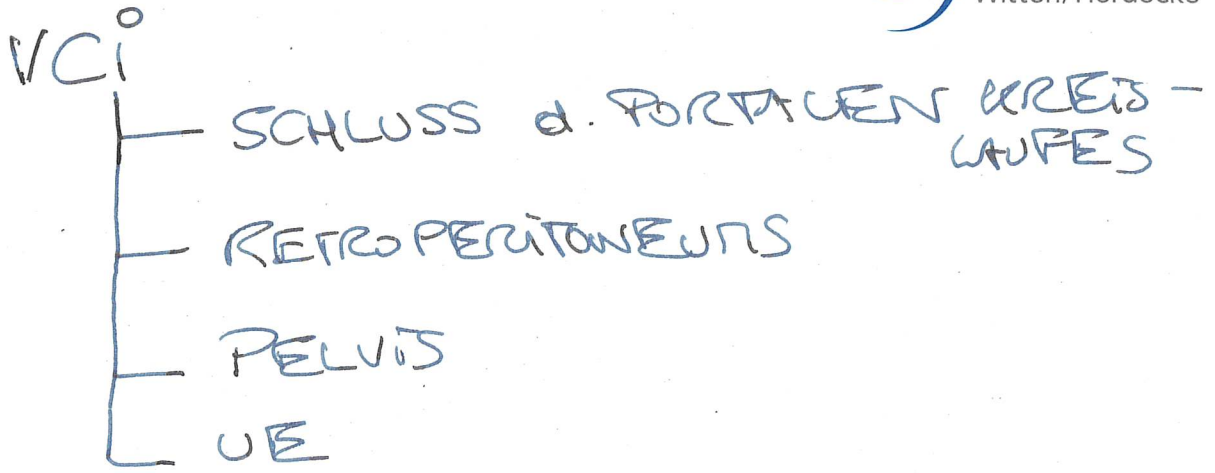 Witten/Herdecke
VCi
SCHLUSS d. PORTALEN KREIS-
LAUFES
RETROPERITONEUMS
PELVIS
UE